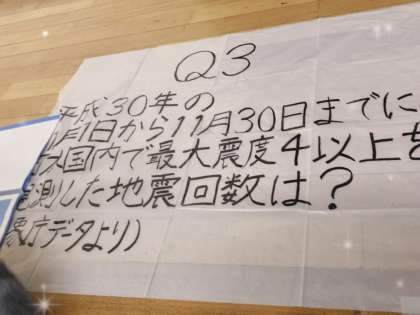 Q3
平成30年の
1月1日から11月30日までに
国内で最大震度4以上を
測した地震回数は?
象庁データより)